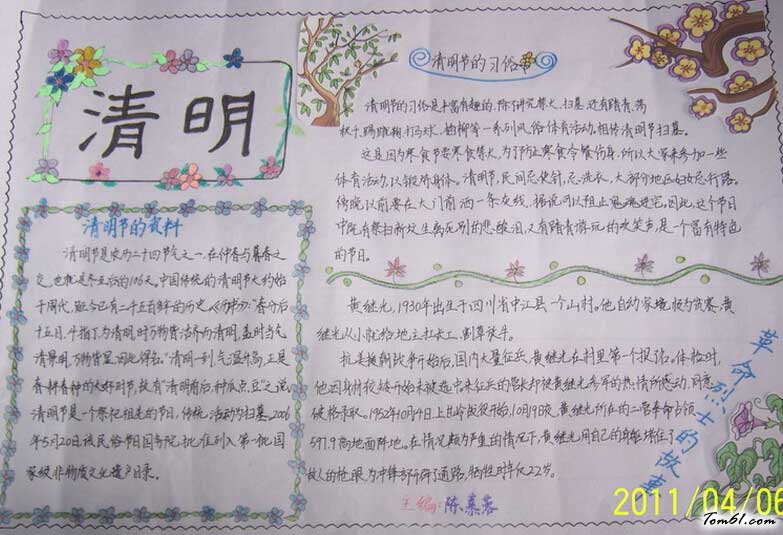 清明
清明节的资料
清明节是农历二十四节气之一,在仲春与暮春之
交,也就是冬至后的106天。中国传统的清明节大约始
于周代,距今已有二千五百多年的历史。《历书》:"春分后
十五日,斗指丁,为清明,时万物皆洁齐而清明,盖时当气
清景明,万物皆显,因此得名。"清明一到,气温升高,正是
春耕春种的大好时节,故有"清明前后,种瓜点豆"之说。
清明节是一个祭祀祖先的节日,传统活动为扫墓。2006
年5月20日,该民俗节日国务院批准列入第一批国
家级非物质文化遗产目录。
清明节的习俗
清明节的习俗是丰富有趣的,除讲究禁火、扫墓,还有踏青、荡
秋千、蹴鞠、打马球、插柳等一系列风俗体育活动。相传清明节扫墓。
这是因为寒食节要寒食禁火,为了防止寒食冷餐伤身,所以大家来参加一些
体育活动,以锻炼身体。清明节,民间忌使针,忌洗衣,大部分地区妇女忌行路。
傍晚以前,要在大门前洒一条灰线,据说可以阻止鬼魂进宅。因此,这个节日
中既有祭扫新坟生离死别的悲酸泪,又有踏青游玩的欢笑声,是一个富有特色
的节日。
黄继光,1930年出生于四川省中江县一个山村。他自幼家境极为贫寒,黄
继光从小就给地主扛长工、割草放牛。
抗美援朝战争开始后,国内大量征兵,黄继光在村里第一个报名。体检时,
他因身材较矮开始未被选中,来征兵的营长却被黄继光参军的热情所感动,同意
破格录取。1952年10月14日,上甘岭战役开始,10月19日夜,黄继光所在的二营奉命占领
597.9高地面阵地。在情况颇为严重的情况下,黄继光用自己的身躯堵住了
敌人的枪眼,为冲锋部队开了通路,牺牲时年仅22岁。
革命烈士的故事
主编:陈慕蓉
2011/04/06
Tom61.com